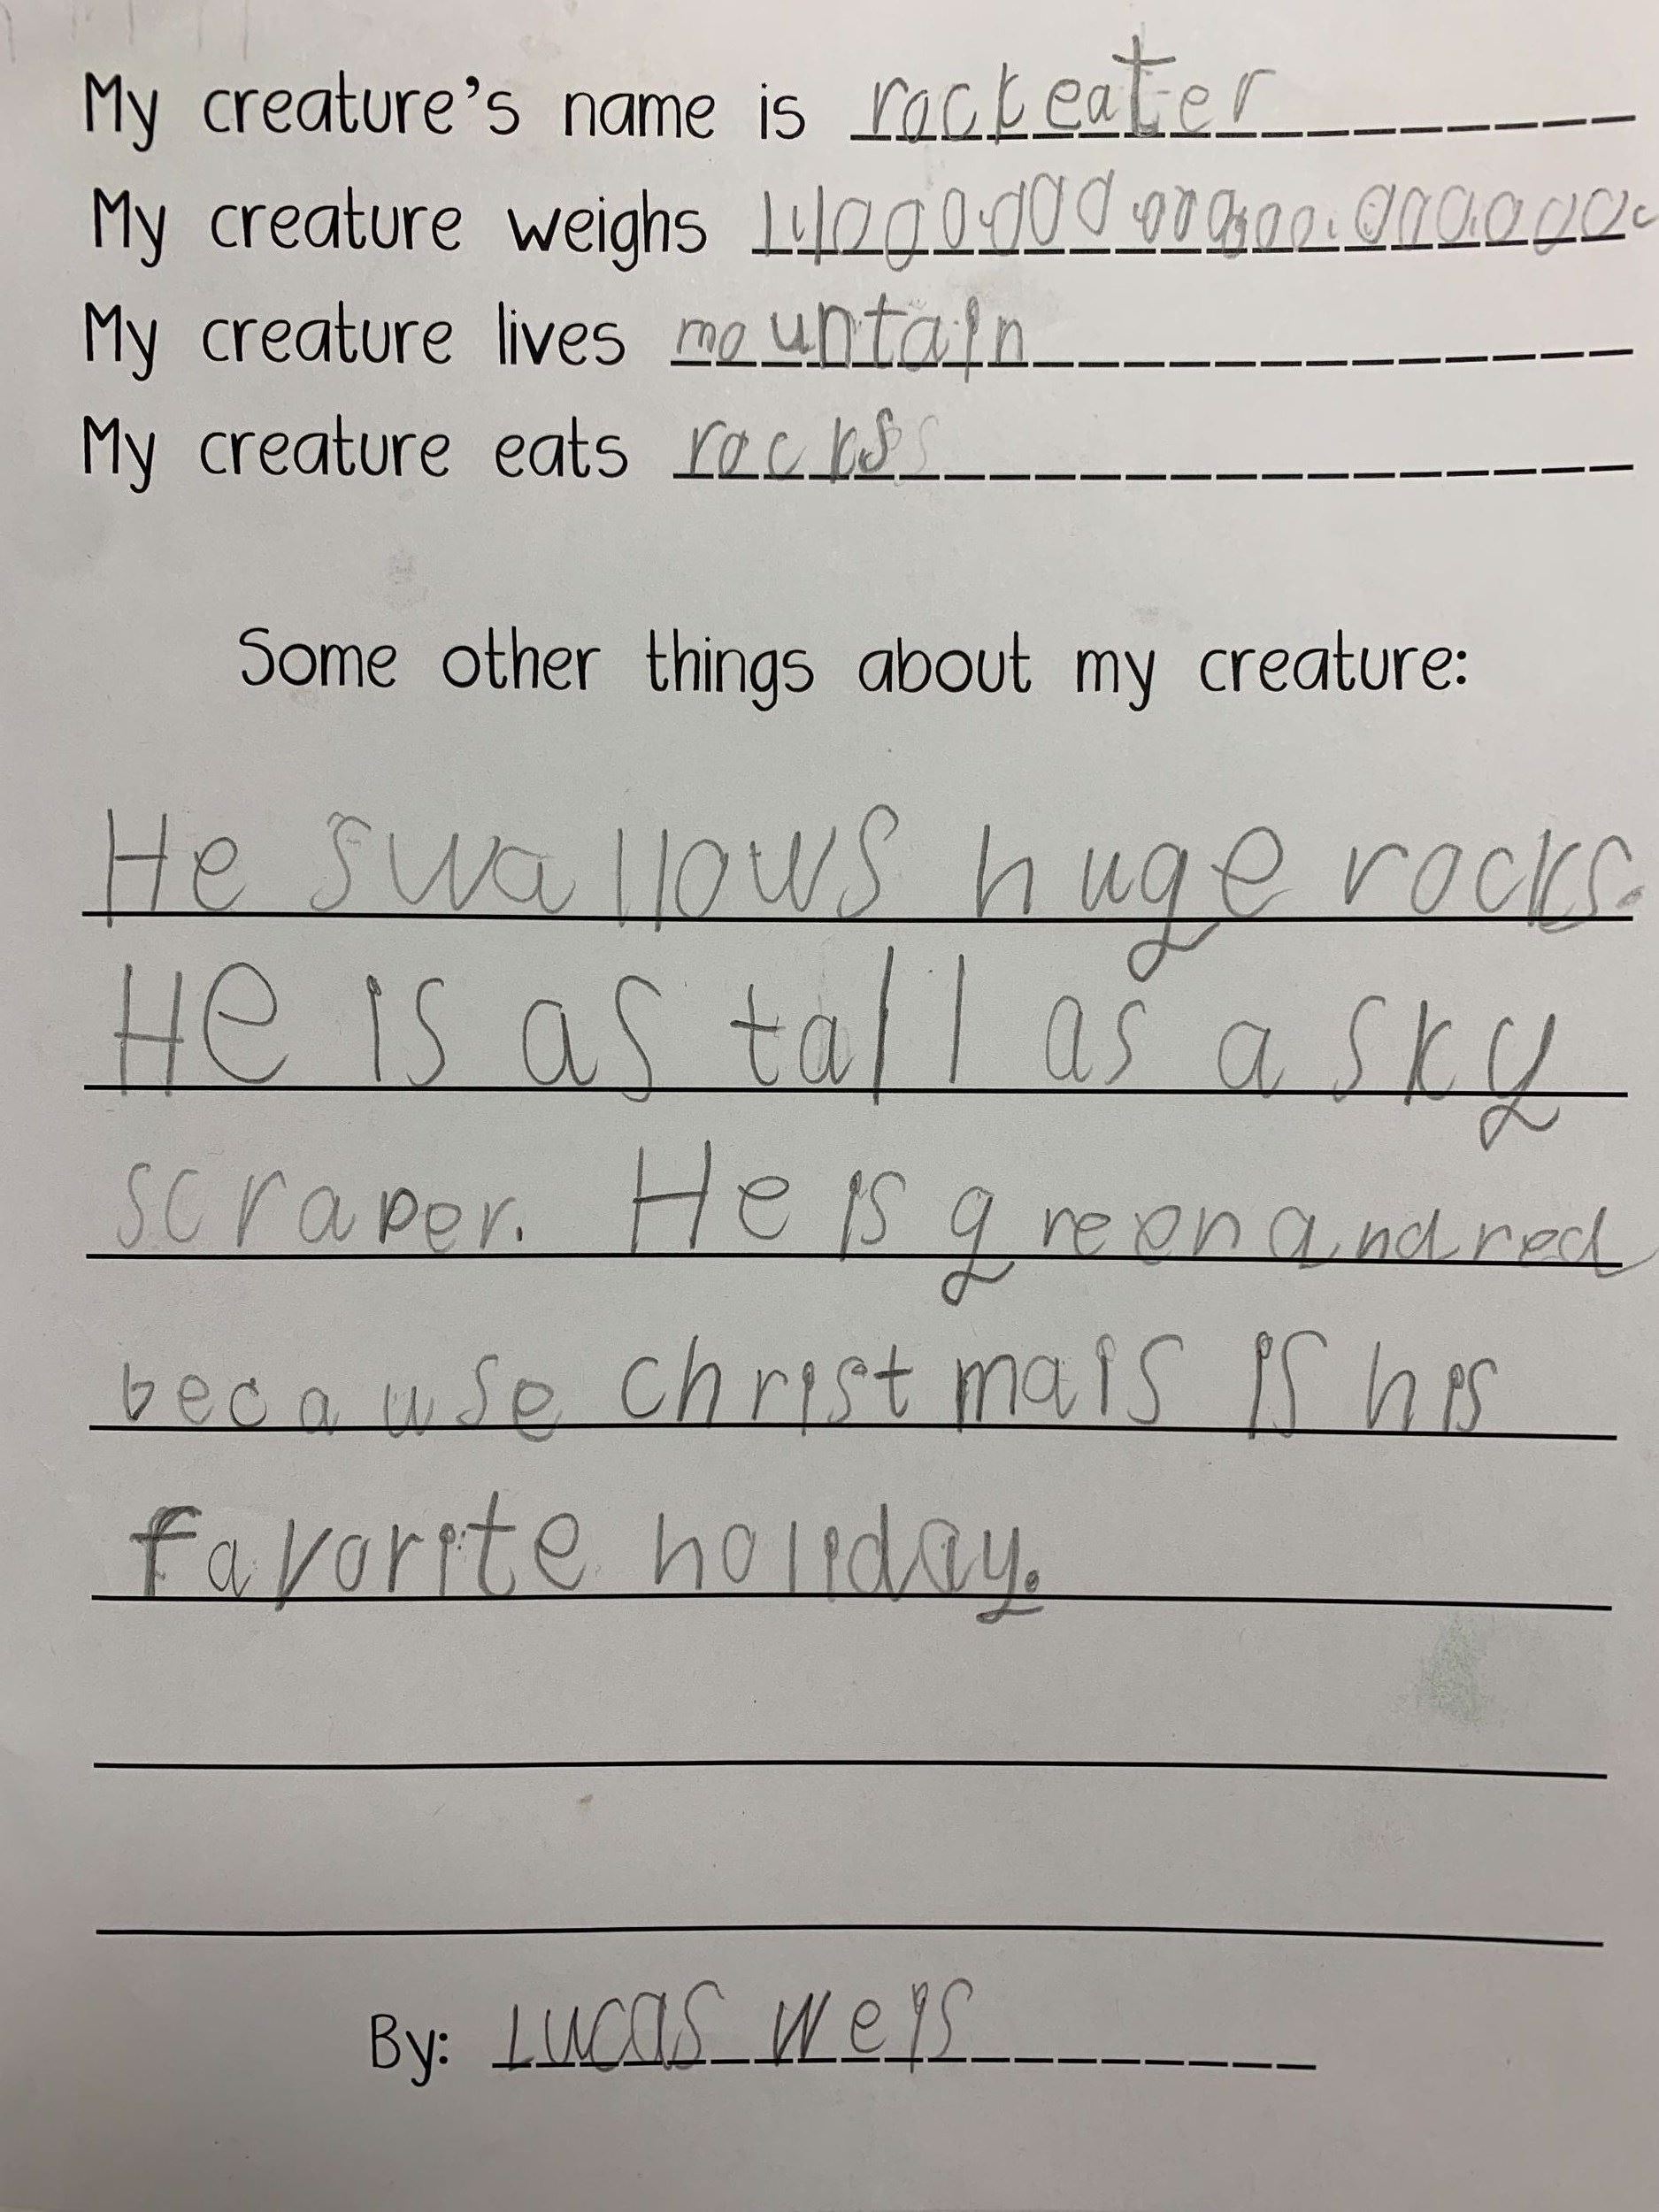 My creature's name is rockeater
My creature weighs
My creature lives mountain
My creature eats rocks
Some other things about my creature:
He swallows huge rocks.
He is as tall as a sky
scraper. He is green and red
because christmais is his
favorite holiday.
By: Lucas Weis